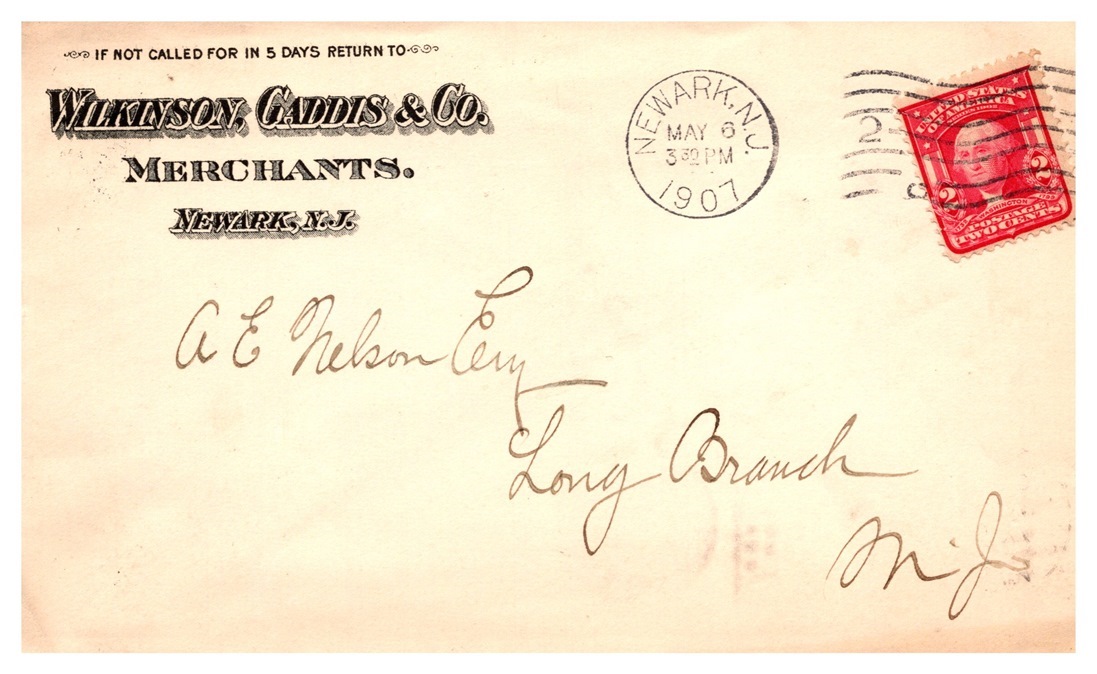 IF NOT CALLED FOR IN 5 DAYS RETURN TO
WILKINSON, GADDIS & CO.
MERCHANTS.
NEWARK, N.J.
NEWARK, N.J.
MAY 6
3 30 PM
1907
2
UNITED STATES
OF AMERICA
SERIES 1902
2 2
WASHINGTON
POSTAGE
TWO CENTS
A E Nelson Esq
Long Branch
N. J.